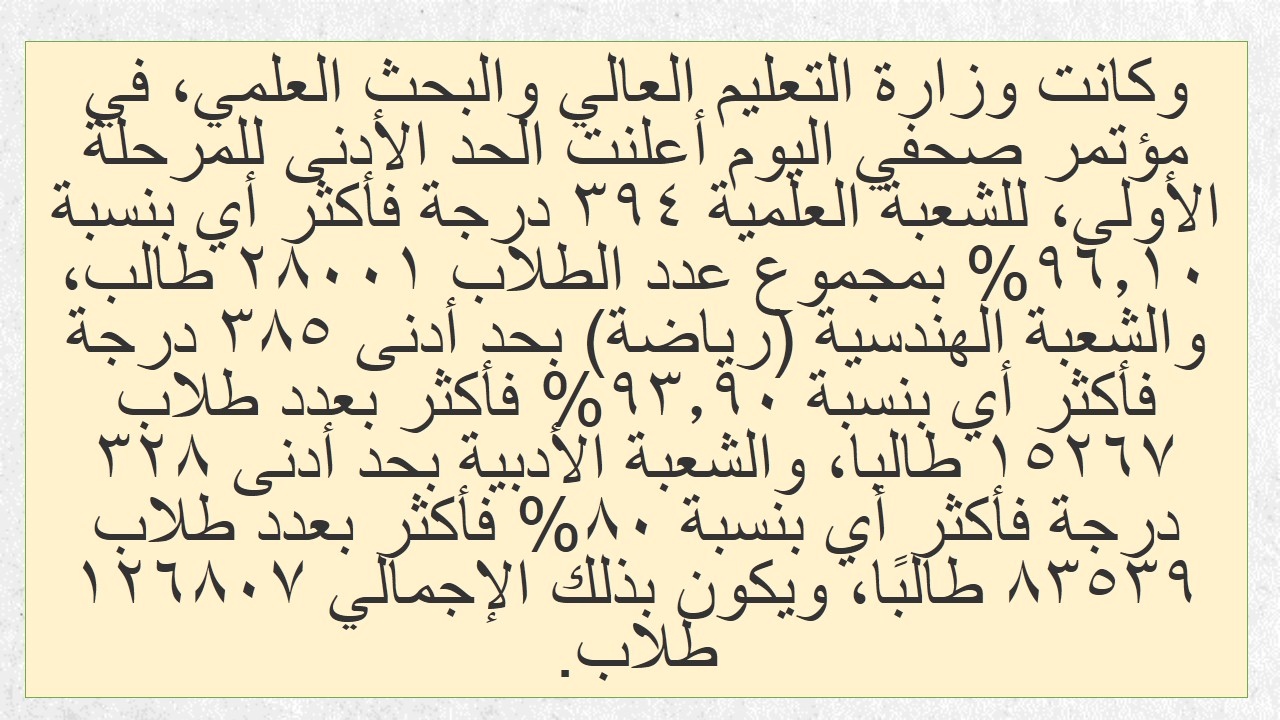 وكانت وزارة التعليم العالي والبحث العلمي، في
مؤتمر صحفي اليوم أعلنت الحد الأدنى للمرحلة
الأولي، للشعبة العلمية ٣٩٤ درجة فأكثر أي بنسبة
٩٦,١٠% بمجموع عدد الطلاب ٢٨٠٠١ طالب،
والشعبة الهندسية (رياضة) بحد أدنى ٣٨٥ درجة
فأكثر أي بنسبة ٩٣,٩٠% فأكثر بعدد طلاب
١٥٢٦٧ طالبا، والشعبة الأدبية بحد أدنى ٣٢٨
درجة فأكثر أي بنسبة ٨٠% فأكثر بعدد طلاب
٨٣٥٣٩ طالبًا، ويكون بذلك الإجمالي ١٢٦٨٠٧
طلاب.